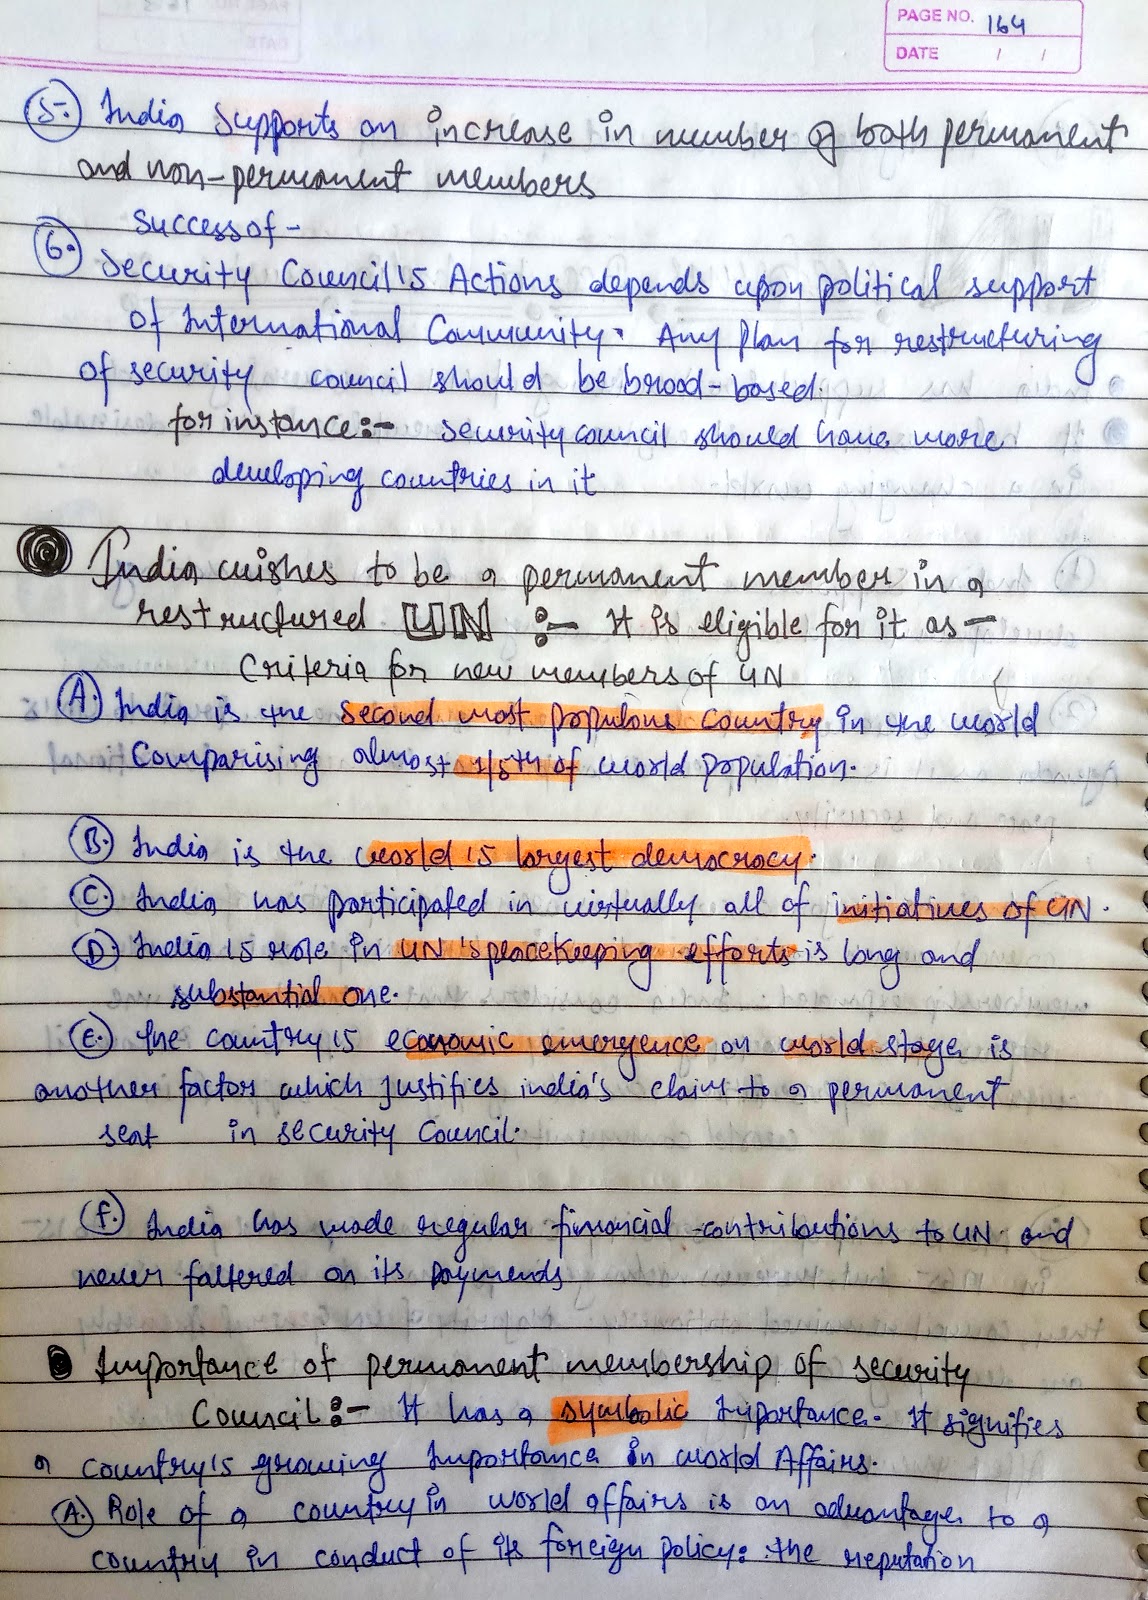 PAGE NO. 164
DATE / /
5. India supports an increase in number of both permanent
and non-permanent members
success of -
6. Security Council's Actions depends upon political support
of International Community. Any plan for restructuring
of security council should be broad-based.
for instance:- security council should have more
developing countries in it
India wishes to be a permanent member in a
restructured UN :- It is eligible for it as -
Criteria for new members of UN
A. India is the second most populous country in the world
Comparising almost 1/5th of world population.
B. India is the world's largest democracy.
C. India has participated in virtually all of initiatives of UN.
D. India's role in UN's peacekeeping efforts is long and
substantial one.
E. The country's economic emergence on world stage is
another factor which justifies india's claim to a permanent
seat in security Council.
f. India has made regular financial contributions to UN and
never faltered on its payments
Importance of permanent membership of security
Council:- It has a symbolic Importance. It signifies
a country's growing Importance in world Affairs.
A. Role of a country in world affairs is an advantage to a
country in conduct of its foreign policy: the reputation